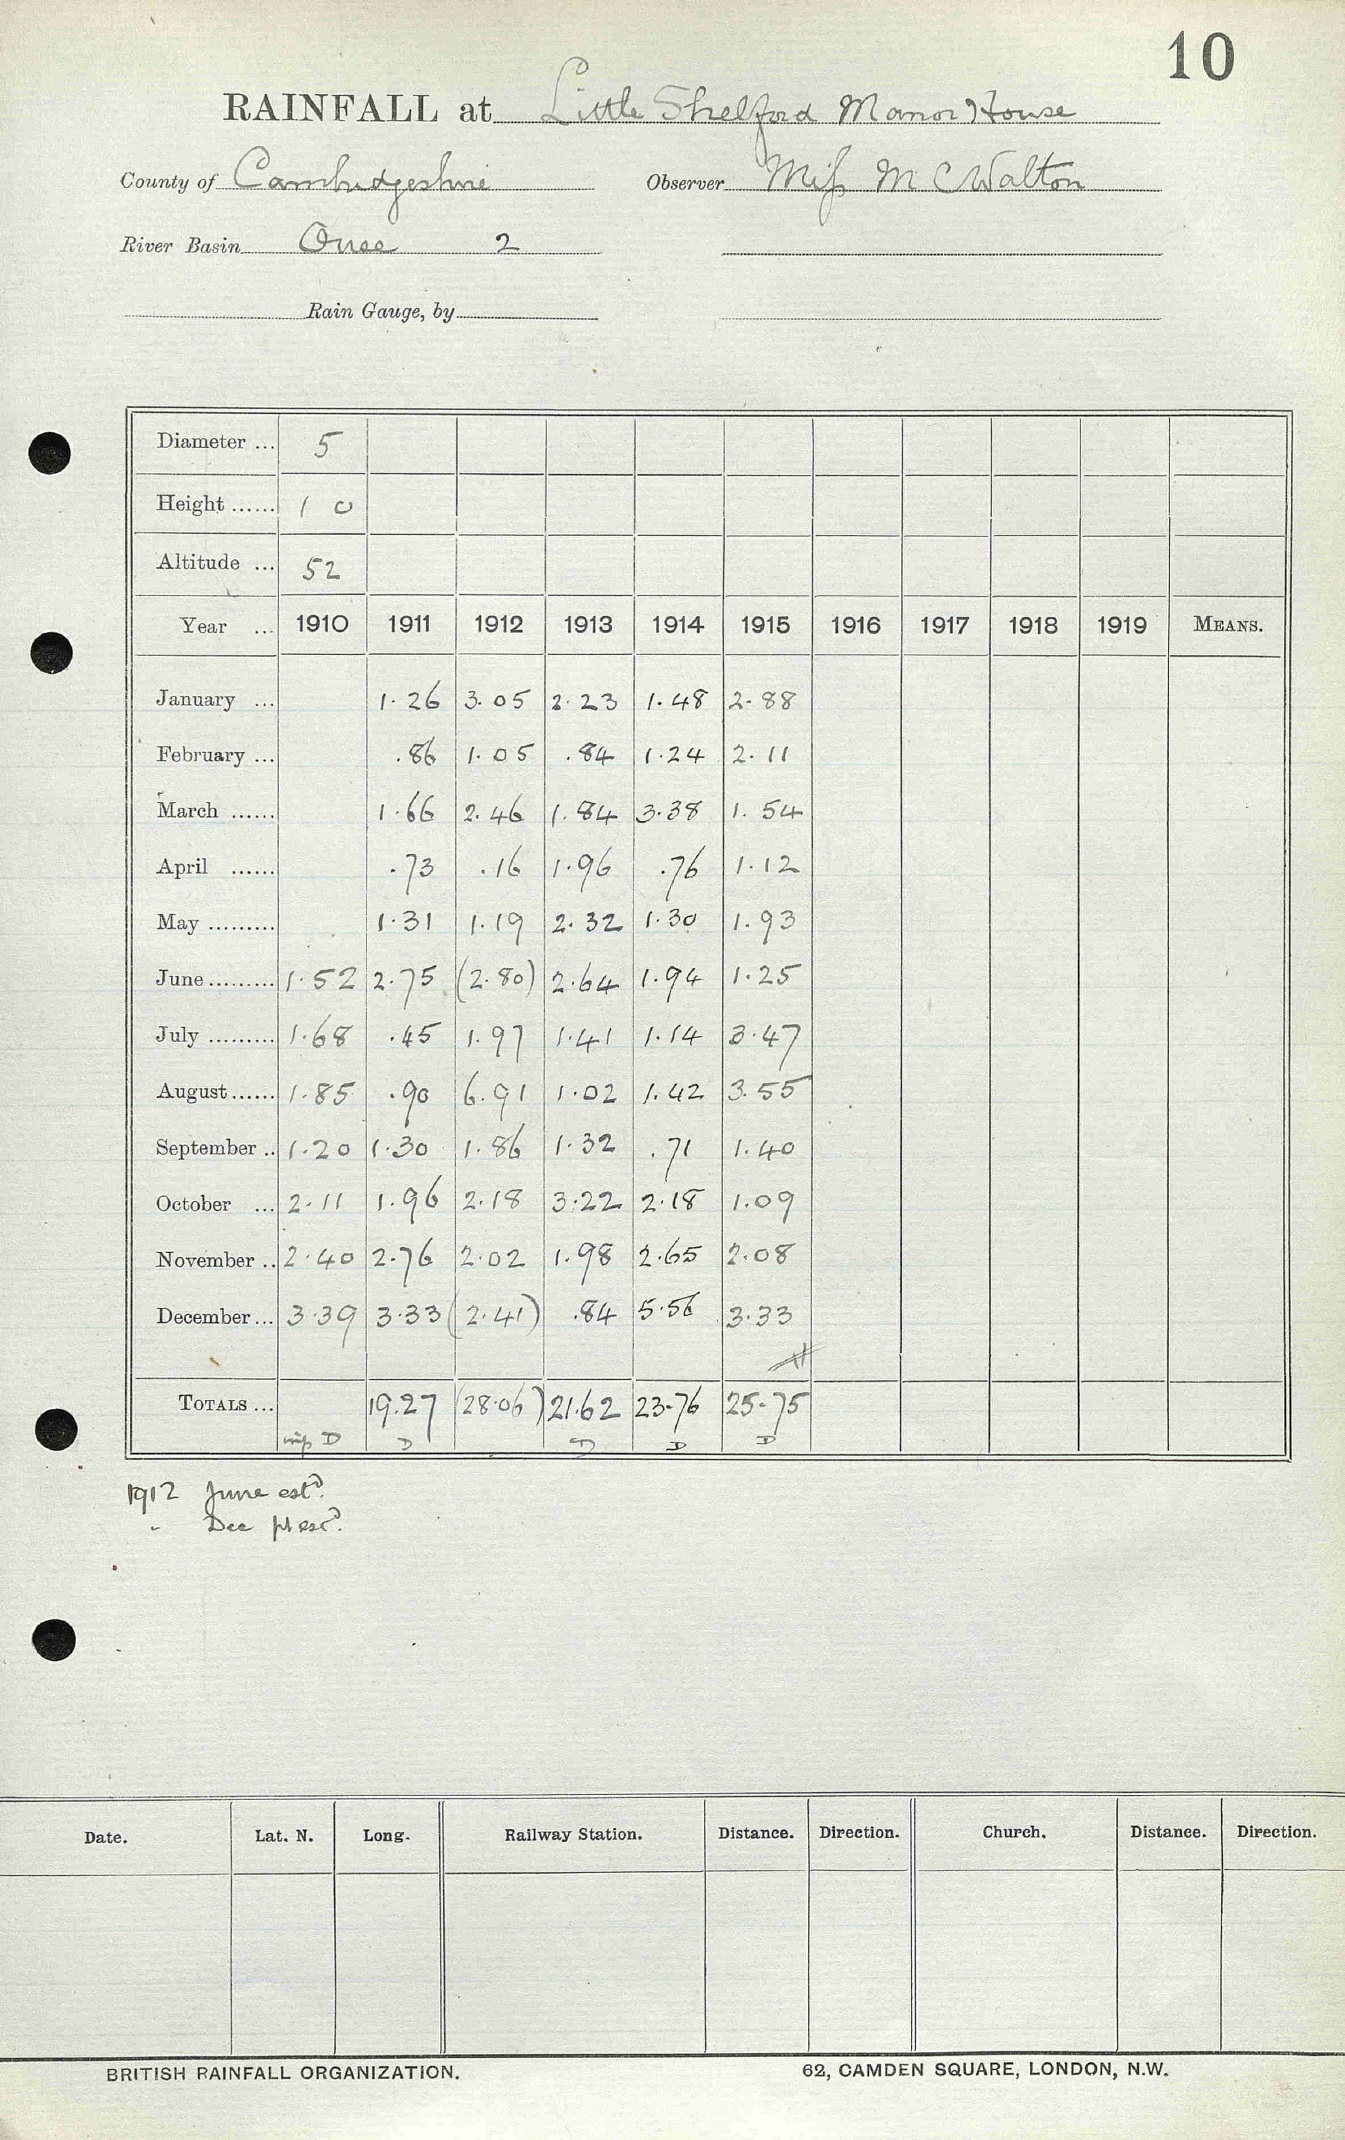 10
RAINFALL at Little Shelford Manor House
County of Cambridgeshire Observer Miss M C Walton
River Basin Ouse 2
Rain Gauge, by
Diameter ... 5
Height ...... 1 0
Altitude ... 52
Year ... 1910 1911 1912 1913 1914 1915 1916 1917 1918 1919 MEANS.
January ... 1.26 3.05 2.23 1.48 2.88
February ... .86 1.05 .84 1.24 2.11
March ...... 1.66 2.46 1.84 3.38 1.54
April ...... .73 .16 1.96 .76 1.12
May ......... 1.31 1.19 2.32 1.30 1.93
June ......... 1.52 2.75 (2.80) 2.64 1.94 1.25
July ......... 1.68 .45 1.97 1.41 1.14 3.47
August ...... 1.85 .90 6.91 1.02 1.42 3.55
September .. 1.20 1.30 1.86 1.32 .71 1.40
October ... 2.11 1.96 2.18 3.22 2.18 1.09
November .. 2.40 2.76 2.02 1.98 2.65 2.08
December ... 3.39 3.33 (2.41) .84 5.56 3.33
TOTALS ... 19.27 (28.06) 21.62 23.76 25.75
D D D D D
1912 June estd.
" Dec pt estd.
Date. Lat. N. Long. Railway Station. Distance. Direction. Church. Distance. Direction.
BRITISH RAINFALL ORGANIZATION. 62, CAMDEN SQUARE, LONDON, N.W.